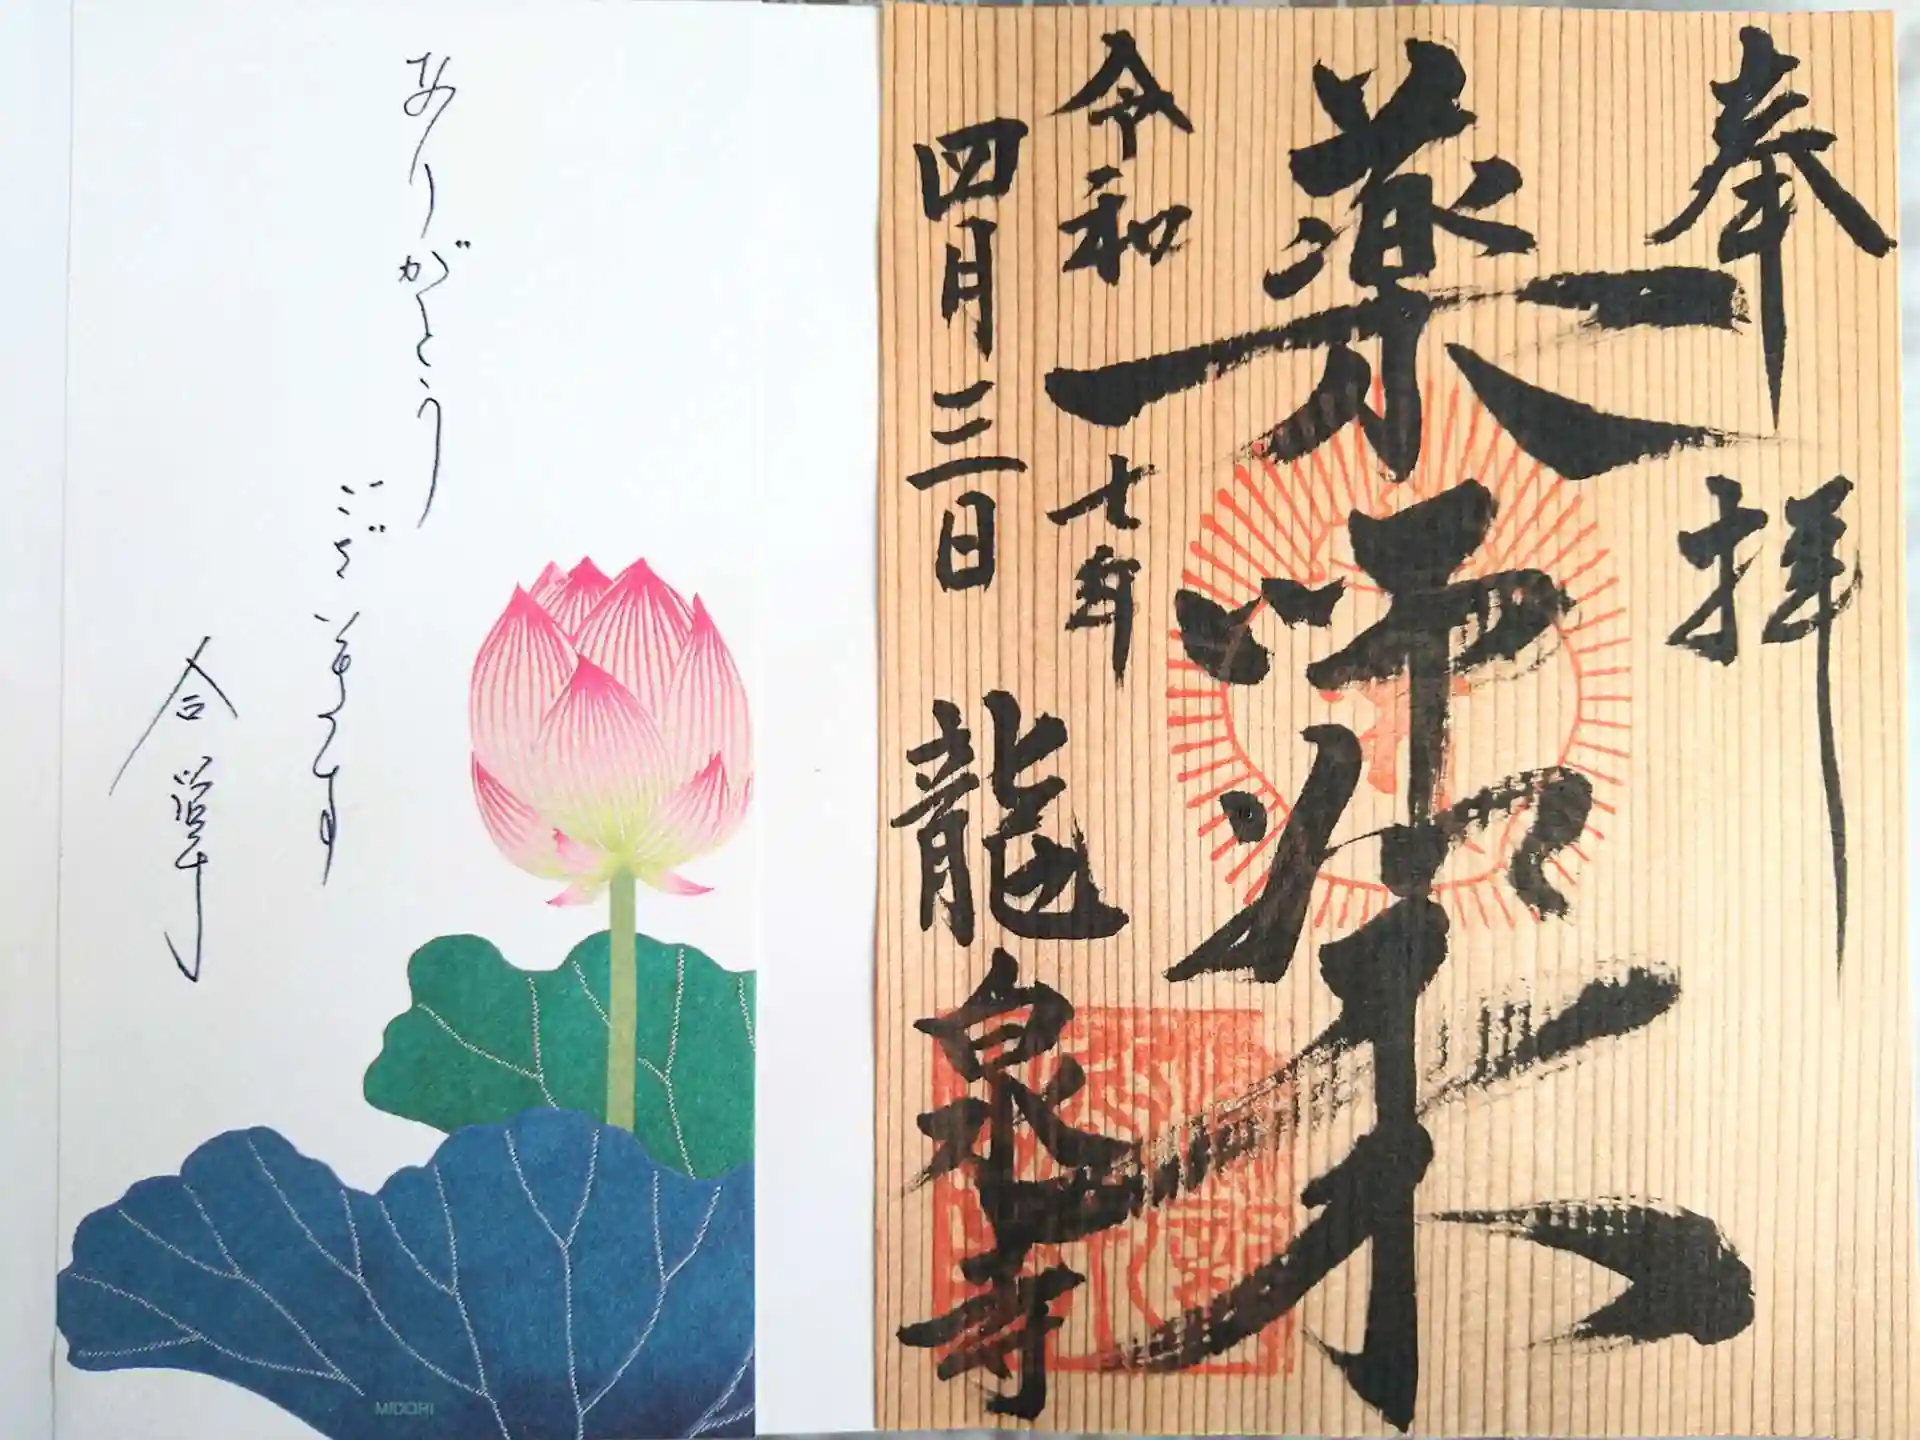 奉拝
薬師如来
令和七年
四月三日
龍泉寺
ありがとう
ございます
合掌
MIDORI